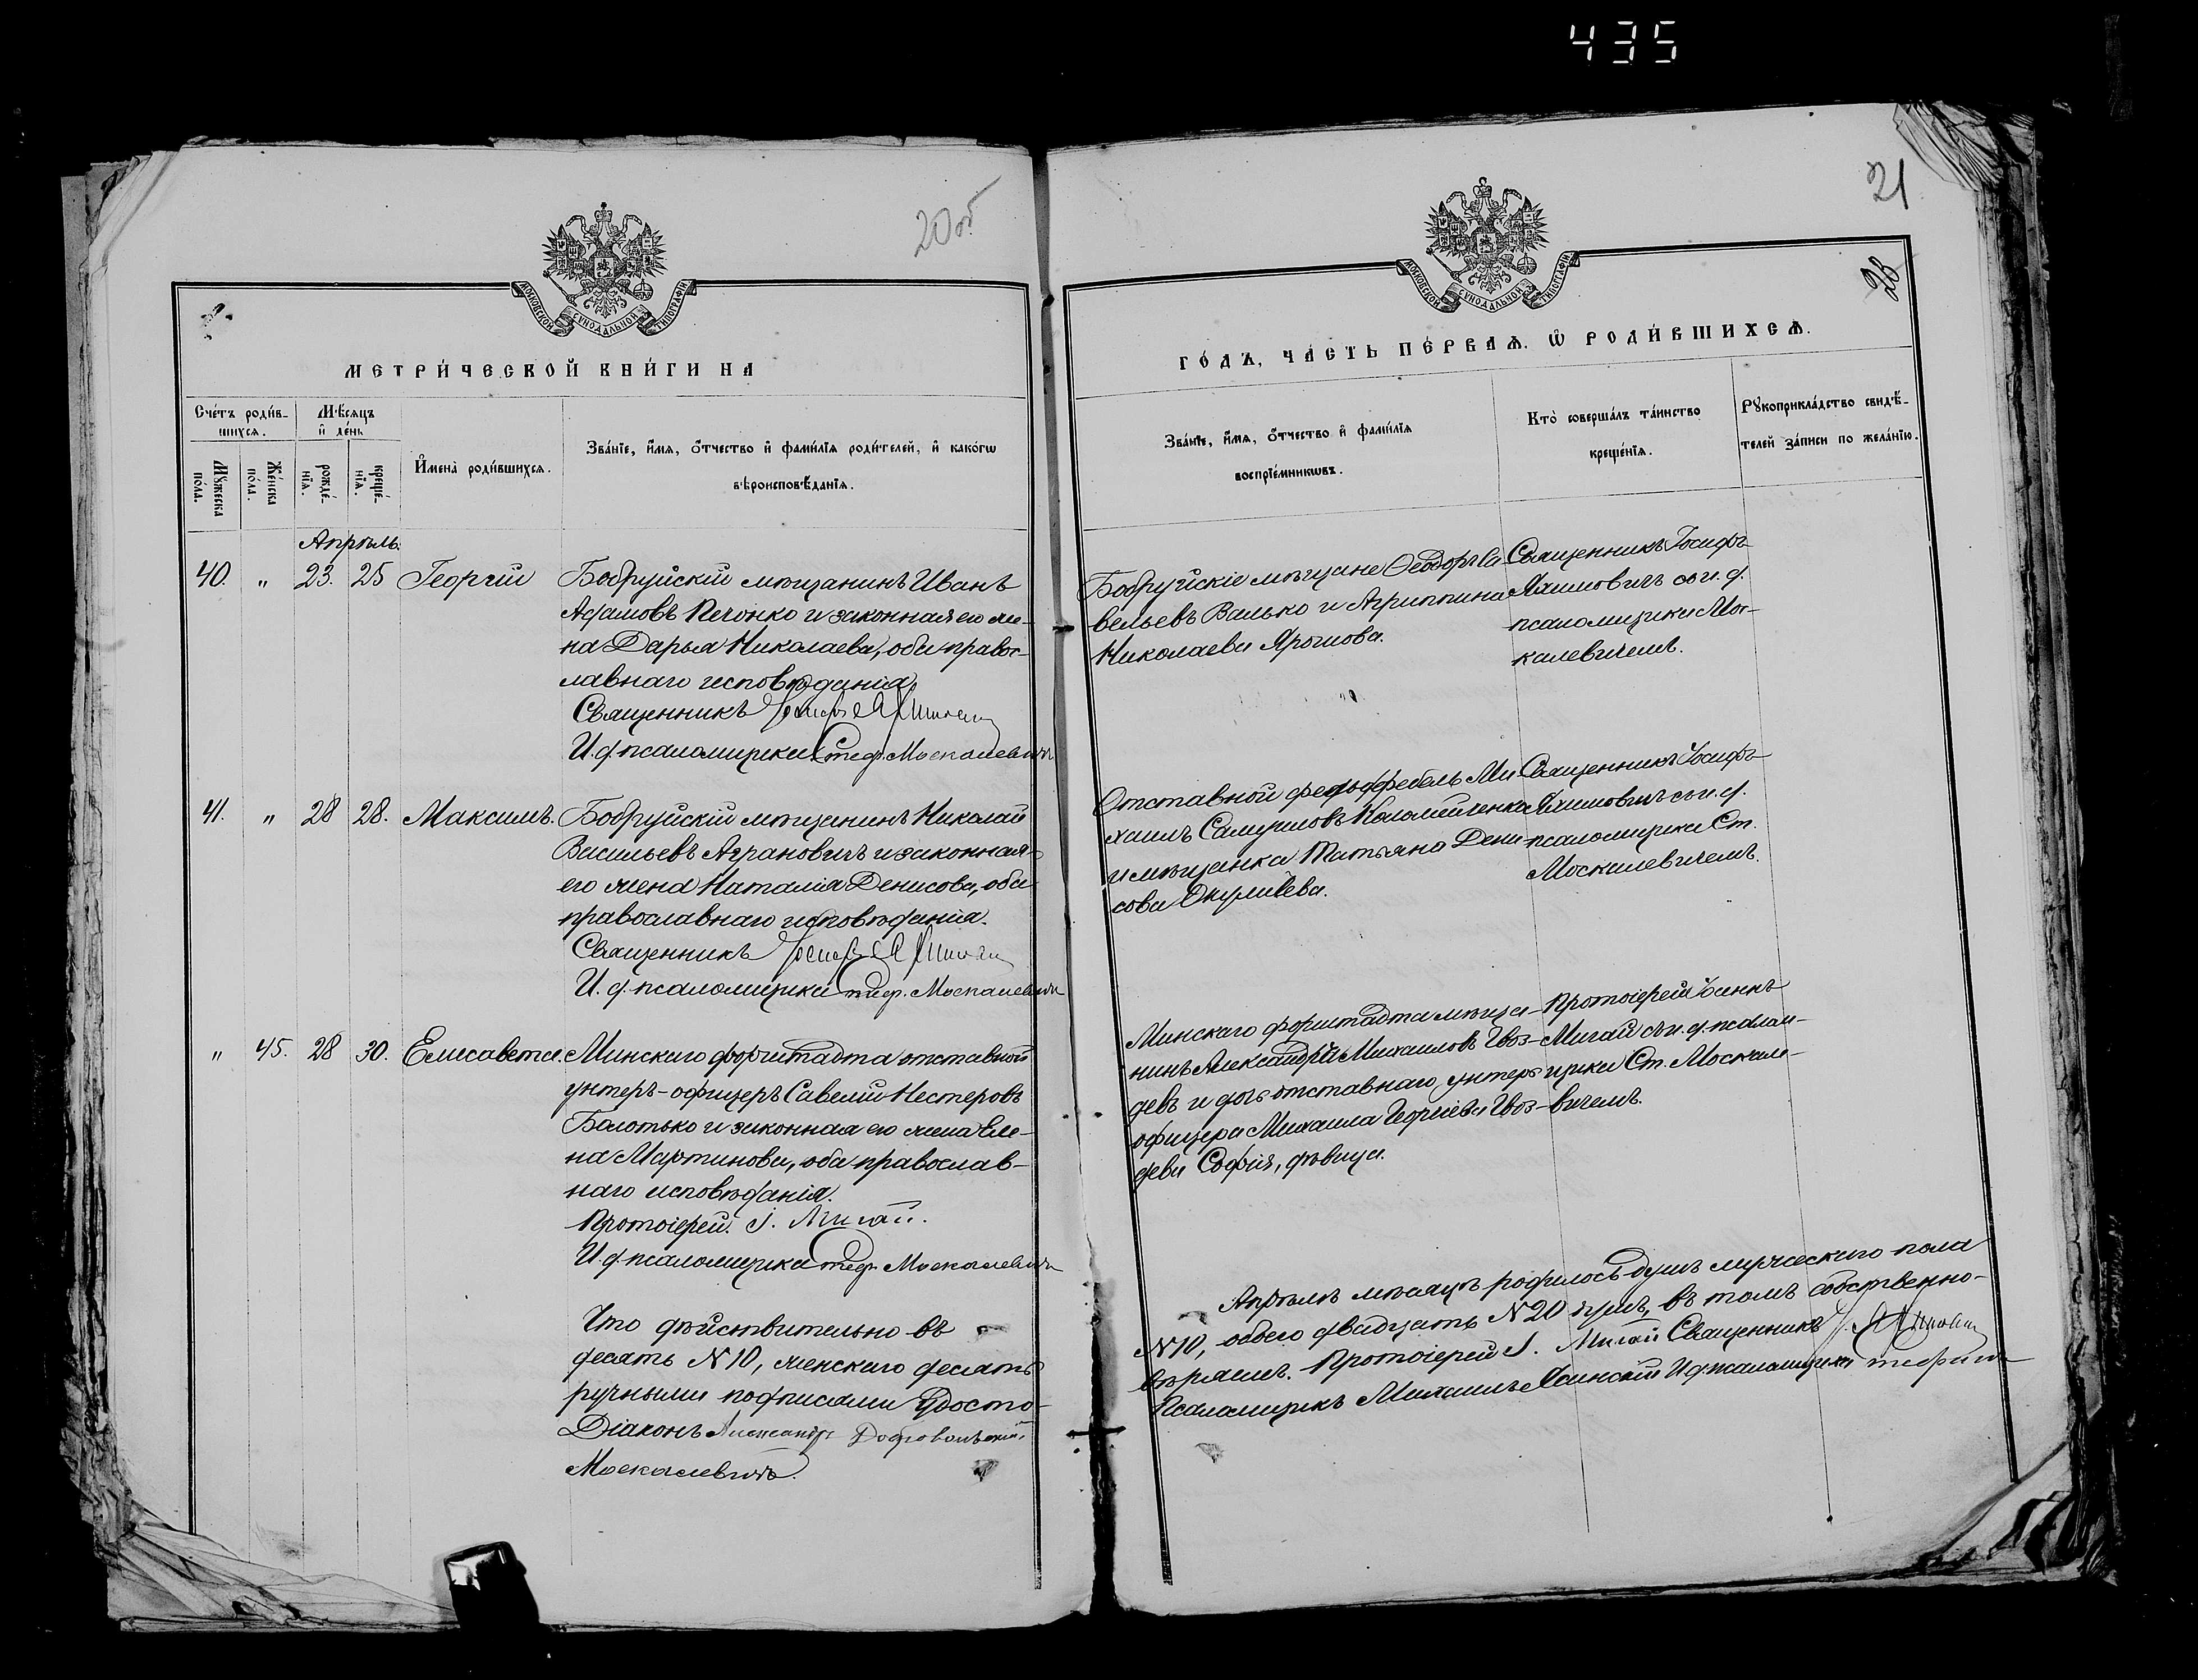 435
20об
21
28
МОСКОВСКОЙ СѴНОДАЛЬНОЙ ТИПОГРАФІИ
МЕТРИ́ЧЕСКОЙ КНИ́ГИ НА
Сче́тъ роди́в-
шихся.
Мꙋ́жеска
по́ла.
Же́нска
по́ла.
Мѣ́сяцъ
и҆ де́нь
рожде́-
нїя.
креще́-
нїя.
И҆мена̀ роди́вшихся.
Зва́нїе, и҆́мя, ѻ҆́тчество и҆ фами́лїя роди́телей, и҆ како́гѡ
вѣроисповѣ́данїя.
Апрѣль.
40. " 23. 25 Георгій
Бобруйскій мѣщанинъ Иванъ
Адамовъ Печонко и законная его же-
на Дарья Николаева, оба правос-
лавнаго исповѣданія.
Священникъ Іосифъ Яхимович
И. д. псаломщика Стеф. Москалевичъ
41. " 28 28. Максимъ.
Бобруйскій мѣщанинъ Николай
Васильевъ Аграновичъ и законная
его жена Наталія Денисова, оба
православнаго исповѣданія.
Священникъ Іосифъ Яхимович
И. д. псаломщика Стеф. Москалевичъ
" 45. 28 30. Елисавета.
Минскаго форштадта отставной
унтеръ-офицеръ Савелій Нестеровъ
Болотько и законная его жена Еле-
на Мартинова, оба православ-
наго исповѣданія.
Протоіерей. І. Мигай.
И. д. псаломщика Стеф. Москалевичъ
Что дѣйствительно въ
десять N 10, женскаго десять
ручными подписами Удосто-
Діаконъ Александръ Добровольскій.
Москалевичъ.
МОСКОВСКОЙ СѴНОДАЛЬНОЙ ТИПОГРАФІИ
ГО́ДЪ, ЧА́СТЬ ПЕ́РВАЯ. Ѡ҆ РОДИ́ВШИХСЯ.
Зва́нїе, и҆́мя, ѻ҆́тчество и҆ фами́лїя
воспрїе́мникѡвъ.
Кто̀ соверша́лъ та́инство
креще́нїя.
Рꙋкоприкла́дство свидѣ́-
телей за́писи по жела́нїю.
Бобруйскіе мѣщане Ѳеодоръ Са-
вельевъ Валько и Агриппина
Николаева Ярошова.
Священникъ Іосифъ
Яхимовичъ съ и. д.
псаломщика Мос-
калевичемъ.
Отставной фельдфебель Ми-
хаилъ Самуиловъ Коломійченко
и мѣщанка Татьяна Дени-
сова Окулевева.
Священникъ Іосифъ
Яхимовичъ съ и. д.
псаломщика Ст.
Москалевичемъ.
Минскаго форштадта мѣща-
нинъ Александръ Михаиловъ Гвоз-
девъ и дочь отставнаго унтеръ
офицера Михаила Георгіева Гвоз-
дева Софія, дѣвица.
Протоіерей Іоаннъ
Мигай съ и. д. псалом-
щика Ст. Москале-
вичемъ.
Апрѣлѣ мѣсяцѣ родилось душъ мужескаго пола
N 10, обоего двадцать N 20 душъ, въ томъ собственно-
вѣряемъ. Протоіерей І. Мигай Священникъ І. Яхимович
Псаломщикъ Михаилъ И. д. псаломщика Стефанъ